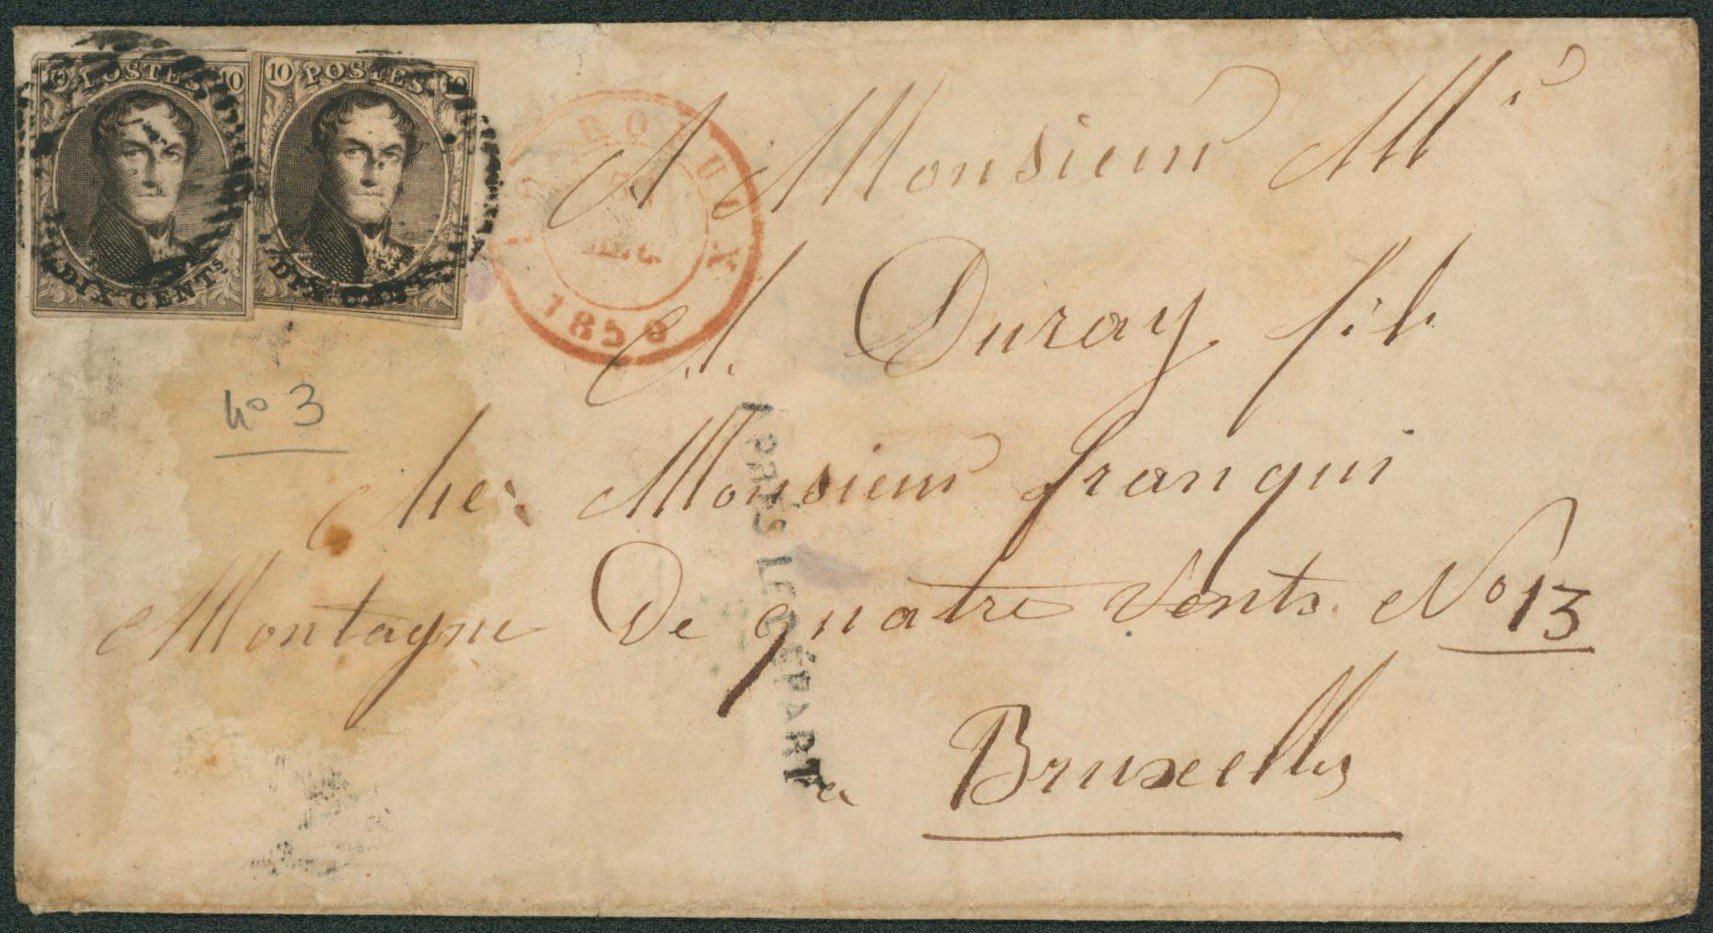 10 POSTES 10
DIX CENTS
10 POSTES 10
DIX CENTS
1850
A Monsieur Mr
A. Duray fils
No 3
chez Monsieur franqui
Montagne De quatre Vents No 13
a Bruxelles
APRÈS LE DÉPART